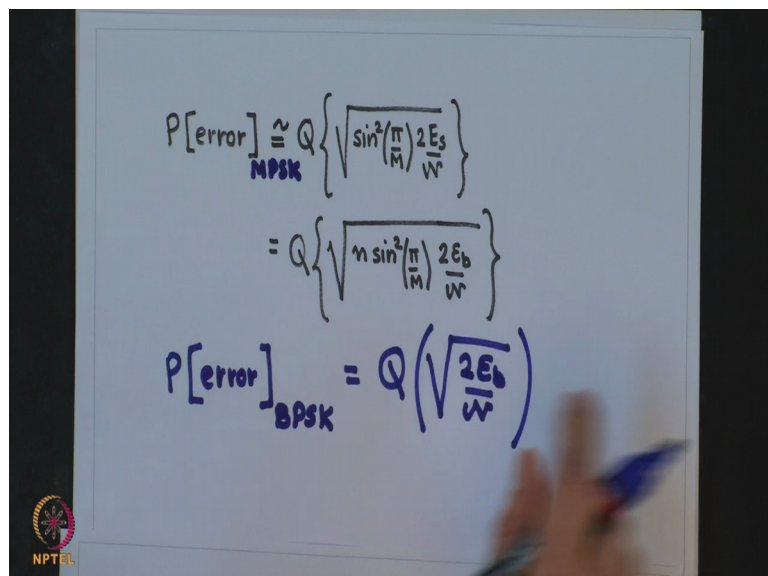 P[error]_MPSK ≅ Q{√(sin²(π/M) 2E_s/𝒩)}
= Q{√(n sin²(π/M) 2E_b/𝒩)}
P[error]_BPSK = Q(√(2E_b/𝒩))
NPTEL